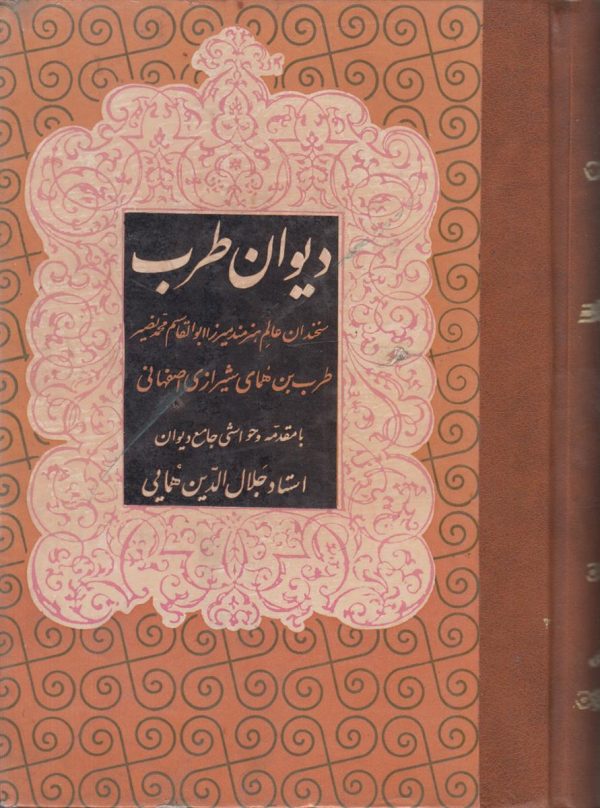 دیوان طرب
سخندان عالم هنرمند میرزا ابوالقاسم محمد نصیر
طرب بن همای شیرازی اصفهانی
با مقدمه و حواشی جامع دیوان
استاد جلال الدین همایی